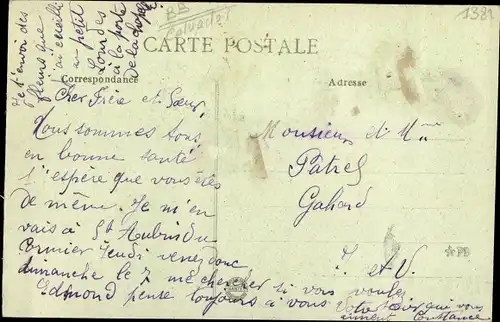 BB
Calvados
1381
CARTE POSTALE
Correspondance
Adresse
Je t'envoi des
fleurs que
j'ai cueilli
un petit
Lourdes
à la porte
De la chapel
Cher Frère et Sœur,
Nous sommes tous
en bonne santé
J'espère que vous êtes
de même. Je m'en
vais à St Aubin du
Cormier Jeudi venez donc
dimanche le 7 me chercher si vous voulez
Edmond pense toujours à vous
Votre Sœur qui vous
aiment Constance
Monsieur et Mme
Patrel
Gahard
I et V.